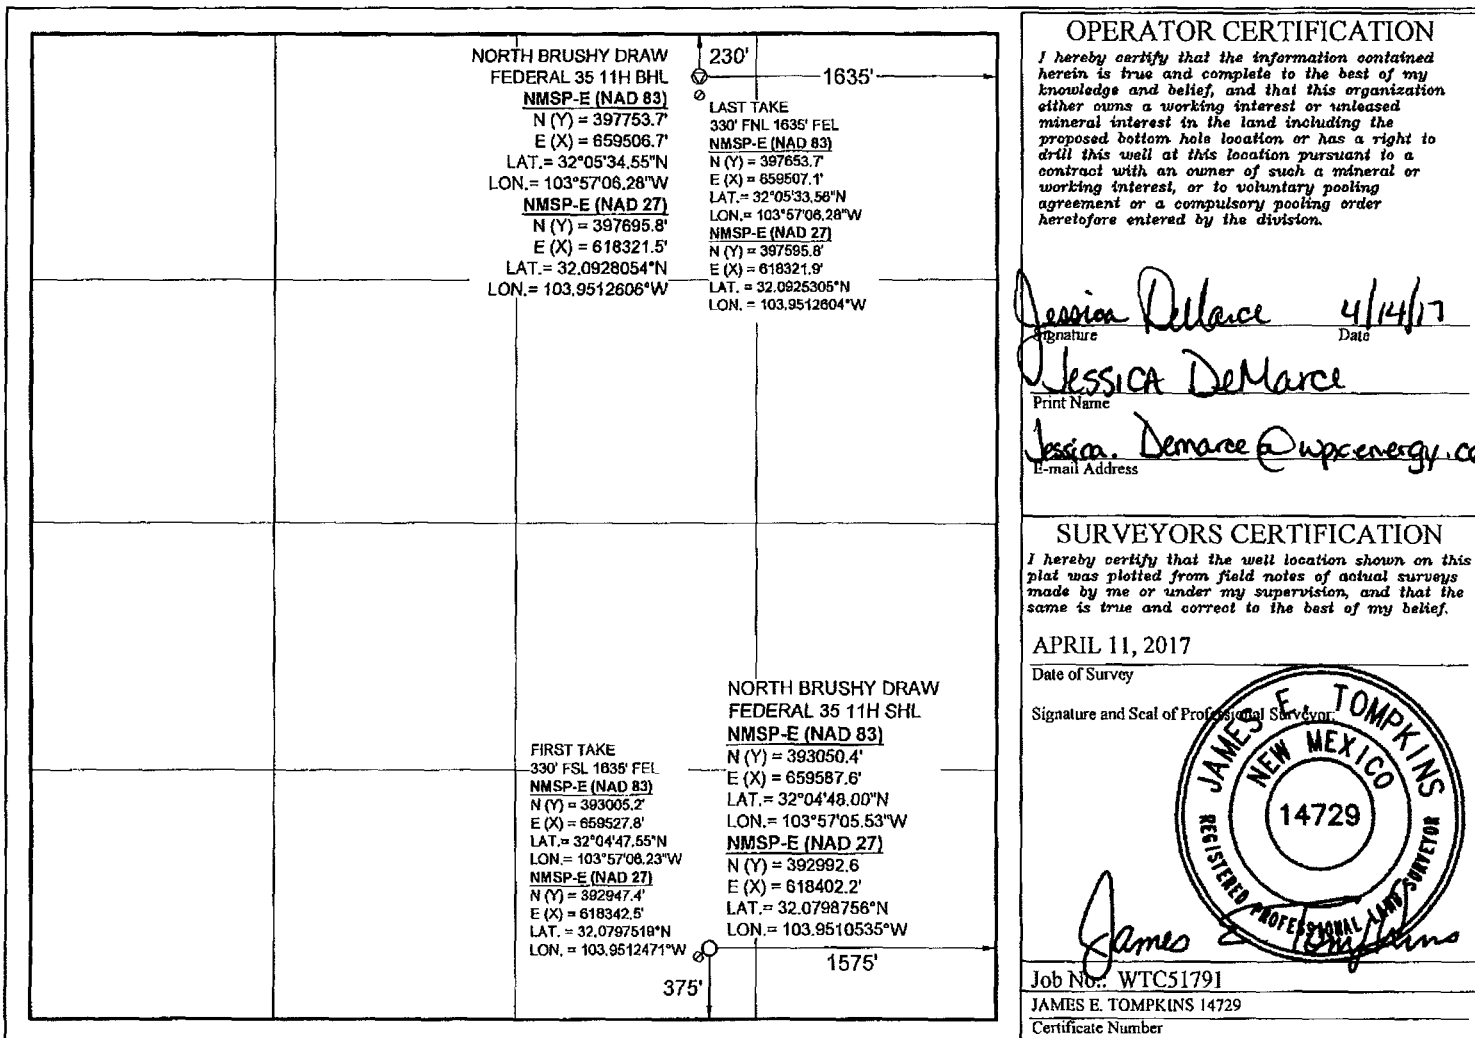 NORTH BRUSHY DRAW
FEDERAL 35 11H BHL
NMSP-E (NAD 83)
N (Y) = 397753.7'
E (X) = 659506.7'
LAT.= 32°05'34.55"N
LON.= 103°57'06.28"W
NMSP-E (NAD 27)
N (Y) = 397695.8'
E (X) = 618321.5'
LAT.= 32.0928054°N
LON.= 103.9512606°W
230'
1635'
LAST TAKE
330' FNL 1635' FEL
NMSP-E (NAD 83)
N (Y) = 397653.7'
E (X) = 659507.1'
LAT.= 32°05'33.56"N
LON.= 103°57'06.28"W
NMSP-E (NAD 27)
N (Y) = 397595.8'
E (X) = 618321.9'
LAT. = 32.0925305°N
LON. = 103.9512604°W
FIRST TAKE
330' FSL 1635' FEL
NMSP-E (NAD 83)
N (Y) = 393005.2'
E (X) = 659527.8'
LAT.= 32°04'47.55"N
LON.= 103°57'06.23"W
NMSP-E (NAD 27)
N (Y) = 392947.4'
E (X) = 618342.5'
LAT. = 32.0797519°N
LON. = 103.9512471°W
NORTH BRUSHY DRAW
FEDERAL 35 11H SHL
NMSP-E (NAD 83)
N (Y) = 393050.4'
E (X) = 659587.6'
LAT.= 32°04'48.00"N
LON.= 103°57'05.53"W
NMSP-E (NAD 27)
N (Y) = 392992.6
E (X) = 618402.2'
LAT.= 32.0798756°N
LON.= 103.9510535°W
1575'
375'
OPERATOR CERTIFICATION
I hereby certify that the information contained
herein is true and complete to the best of my
knowledge and belief, and that this organization
either owns a working interest or unleased
mineral interest in the land including the
proposed bottom hole location or has a right to
drill this well at this location pursuant to a
contract with an owner of such a mineral or
working interest, or to voluntary pooling
agreement or a compulsory pooling order
heretofore entered by the division.
Jessica DeMarce 4/14/17
Signature Date
Jessica DeMarce
Print Name
Jessica.Demarce@wpxenergy.co
E-mail Address
SURVEYORS CERTIFICATION
I hereby certify that the well location shown on this
plat was plotted from field notes of actual surveys
made by me or under my supervision, and that the
same is true and correct to the best of my belief.
APRIL 11, 2017
Date of Survey
Signature and Seal of Professional Surveyor:
JAMES E. TOMPKINS
NEW MEXICO
14729
REGISTERED PROFESSIONAL LAND SURVEYOR
James E Tompkins
Job No.: WTC51791
JAMES E. TOMPKINS 14729
Certificate Number